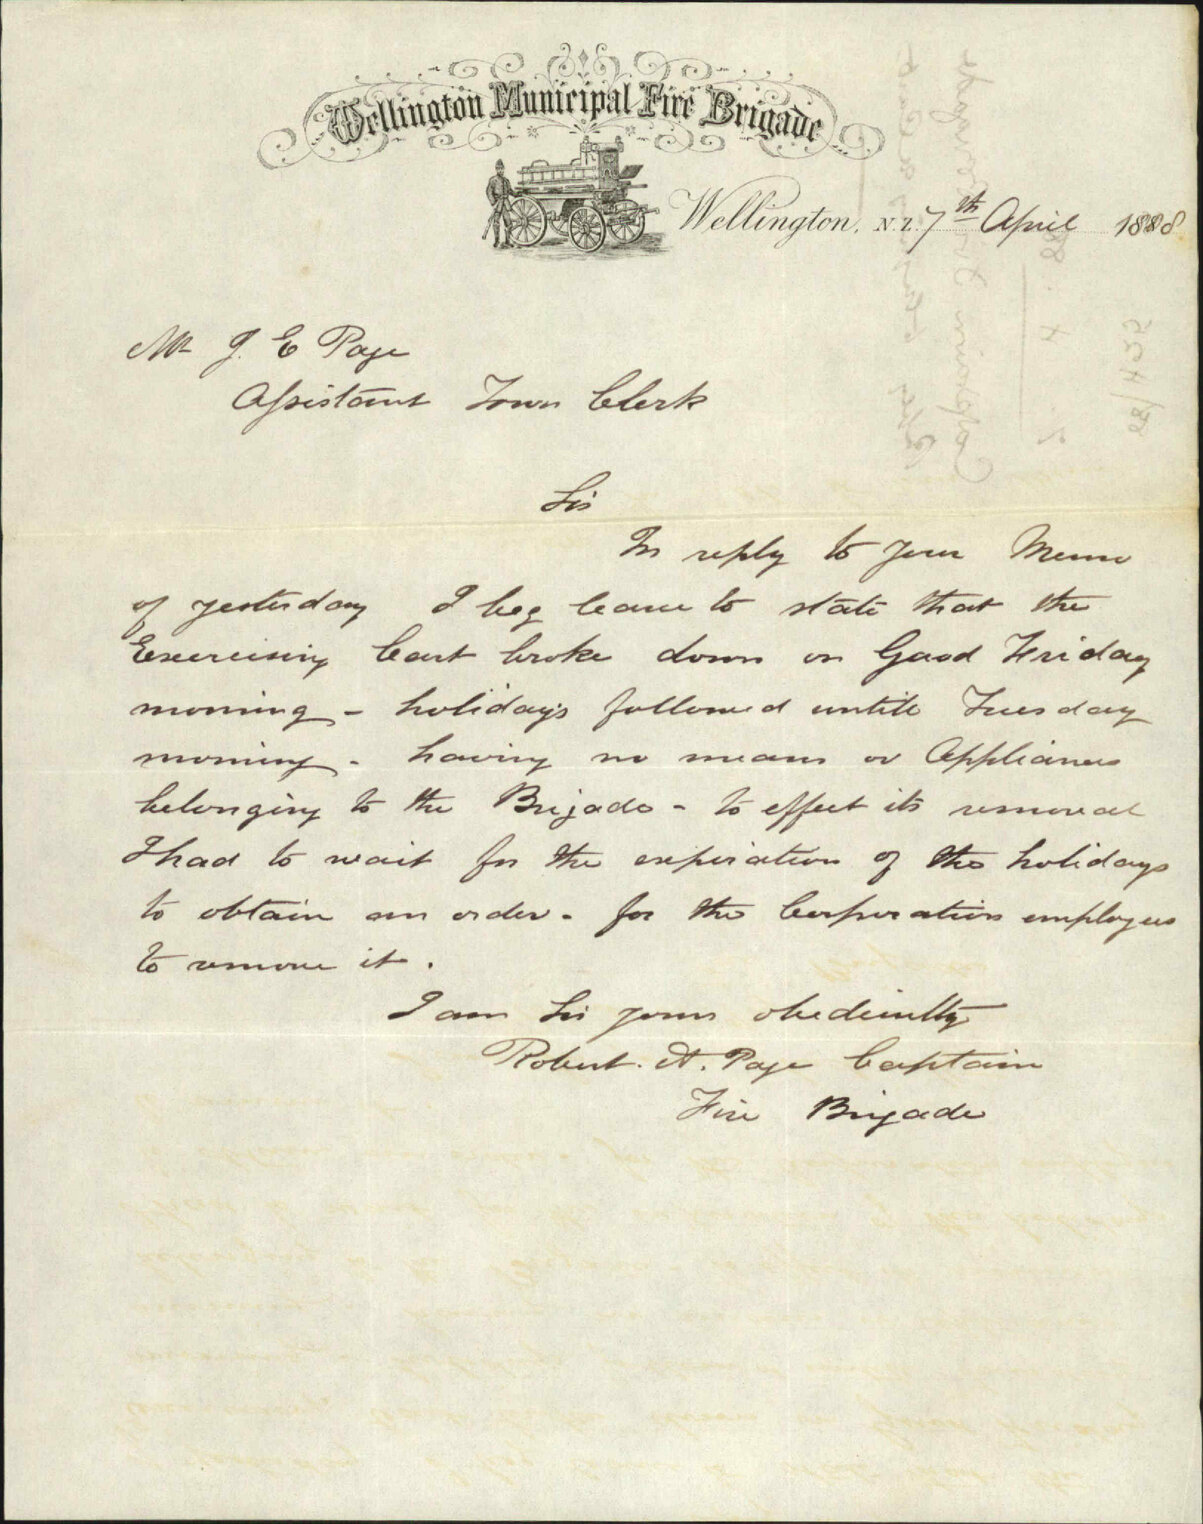 Wellington Municipal Fire Brigade
Wellington, N.Z. 7th April 1888
Mr J. E Page
Assistant Town Clerk
Sir
In reply to your Memo
of yesterday I beg leave to state that the
Exercising Cart broke down on Good Friday
morning - holidays followed until Tuesday
morning - having no means or Appliances
belonging to the Brigade - to effect its removal
I had to wait for the expiration of the holidays
to obtain an order - for the Corporation employees
to remove it.
I am Sir yours obediently
Robert. A. Page Captain
Fire Brigade
88/425